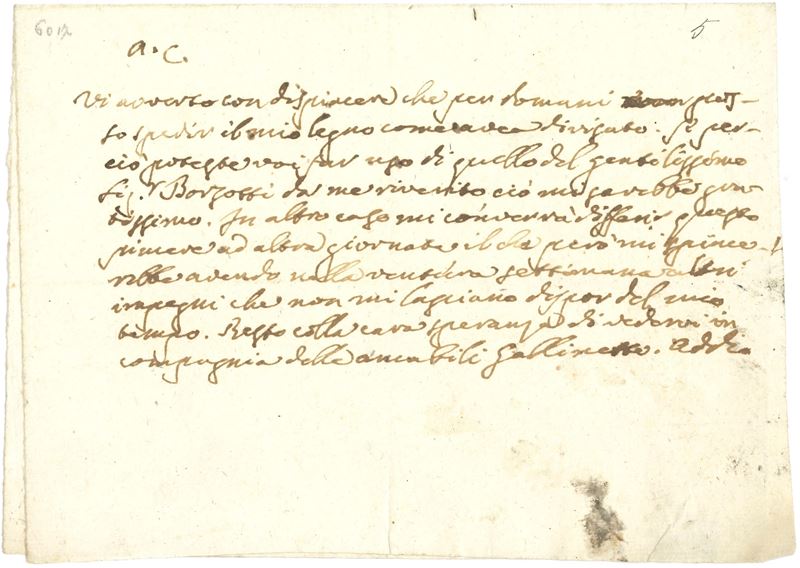 6012
5
A. C.
Vi avverto con dispiacere che per domani non pos-
so spedir il mio legno come avea divisato. Se per-
ciò poteste voi far uso di quello del gentilissimo
Sig.r Borzotti da me riverito ciò mi sarebbe gra-
tissimo. In altro caso mi converrà differir questo
piacere ad altra giornata il che però mi spiace-
rebbe avendo nella ventura settimana altri
impegni che non mi lasciano dispor del mio
tempo. Resto colla cara speranza di vedervi in
compagnia delle amabili Gallinette. Addio